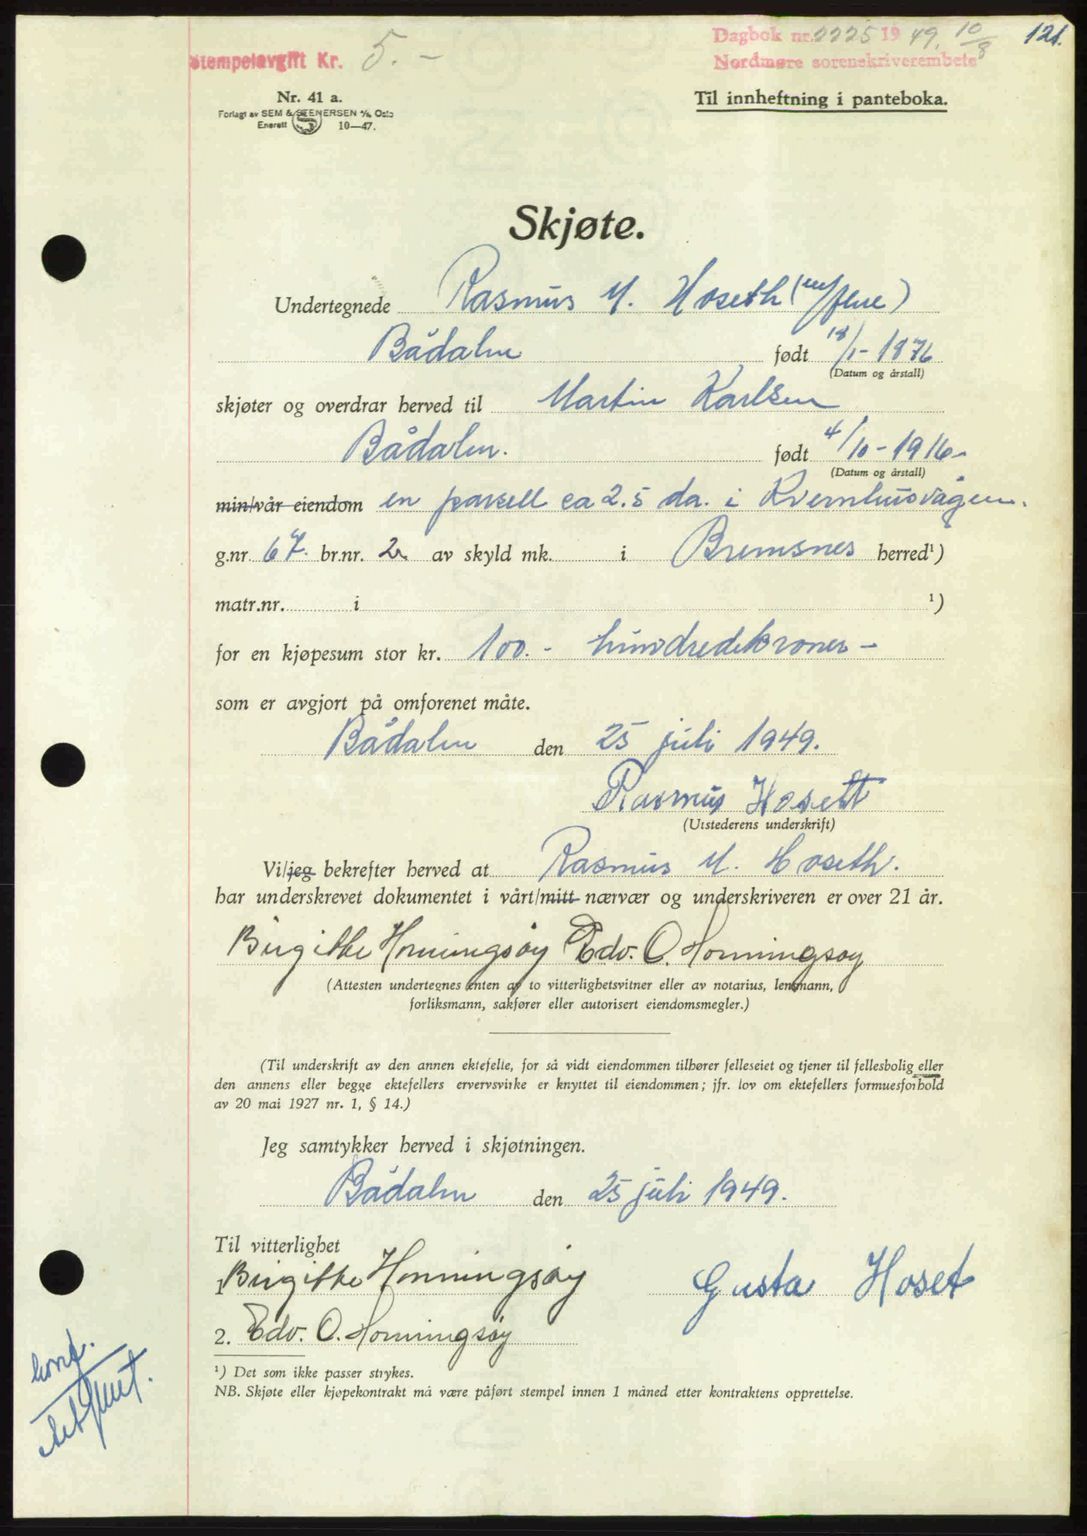 Stempelavgift Kr. 5.-
Dagbok nr. 2225 1949. 10/8
Nordmøre sorenskriverembete
121.
Nr. 41 a.
Forlagt av SEM & STENERSEN A/S, Oslo
Enerett 10—47.
Til innheftning i panteboka.
Skjøte.
Undertegnede Rasmus M. Hoseth
Bådalen født 18/1-1876
(Datum og årstall)
skjøter og overdrar herved til Martin Karlsen
Bådalen. født 4/10-1916
(Datum og årstall)
min/vår eiendom en parsell ca 2.5 da. i Kvernhusvågen.
g.nr 67. br.nr. 2 av skyld mk. i Bremsnes herred¹)
matr.nr. i ¹)
for en kjøpesum stor kr. 100.- hundredekroner-
som er avgjort på omforenet måte.
Bådalen den 25 juli 1949.
Rasmus Hosett
(Utstederens underskrift)
Vi/jeg bekrefter herved at Rasmus M. Hoseth.
har underskrevet dokumentet i vårt/mitt nærvær og underskriveren er over 21 år.
Birgithe Honningsøy Edv. O. Honningsøy
(Attesten undertegnes enten av to vitterlighetsvitner eller av notarius, lensmann,
forliksmann, sakfører eller autorisert eiendomsmegler.)
(Til underskrift av den annen ektefelle, for så vidt eiendommen tilhører felleseiet og tjener til fellesbolig eller
den annens eller begge ektefellers ervervsvirke er knyttet til eiendommen; jfr. lov om ektefellers formuesforhold
av 20 mai 1927 nr. 1, § 14.)
Jeg samtykker herved i skjøtningen.
Bådalen den 25 juli 1949.
Til vitterlighet
1. Birgithe Honningsøy Gusta Hoset
2. Edv. O. Honningsøy
¹) Det som ikke passer strykes.
NB. Skjøte eller kjøpekontrakt må være påført stempel innen 1 måned etter kontraktens opprettelse.